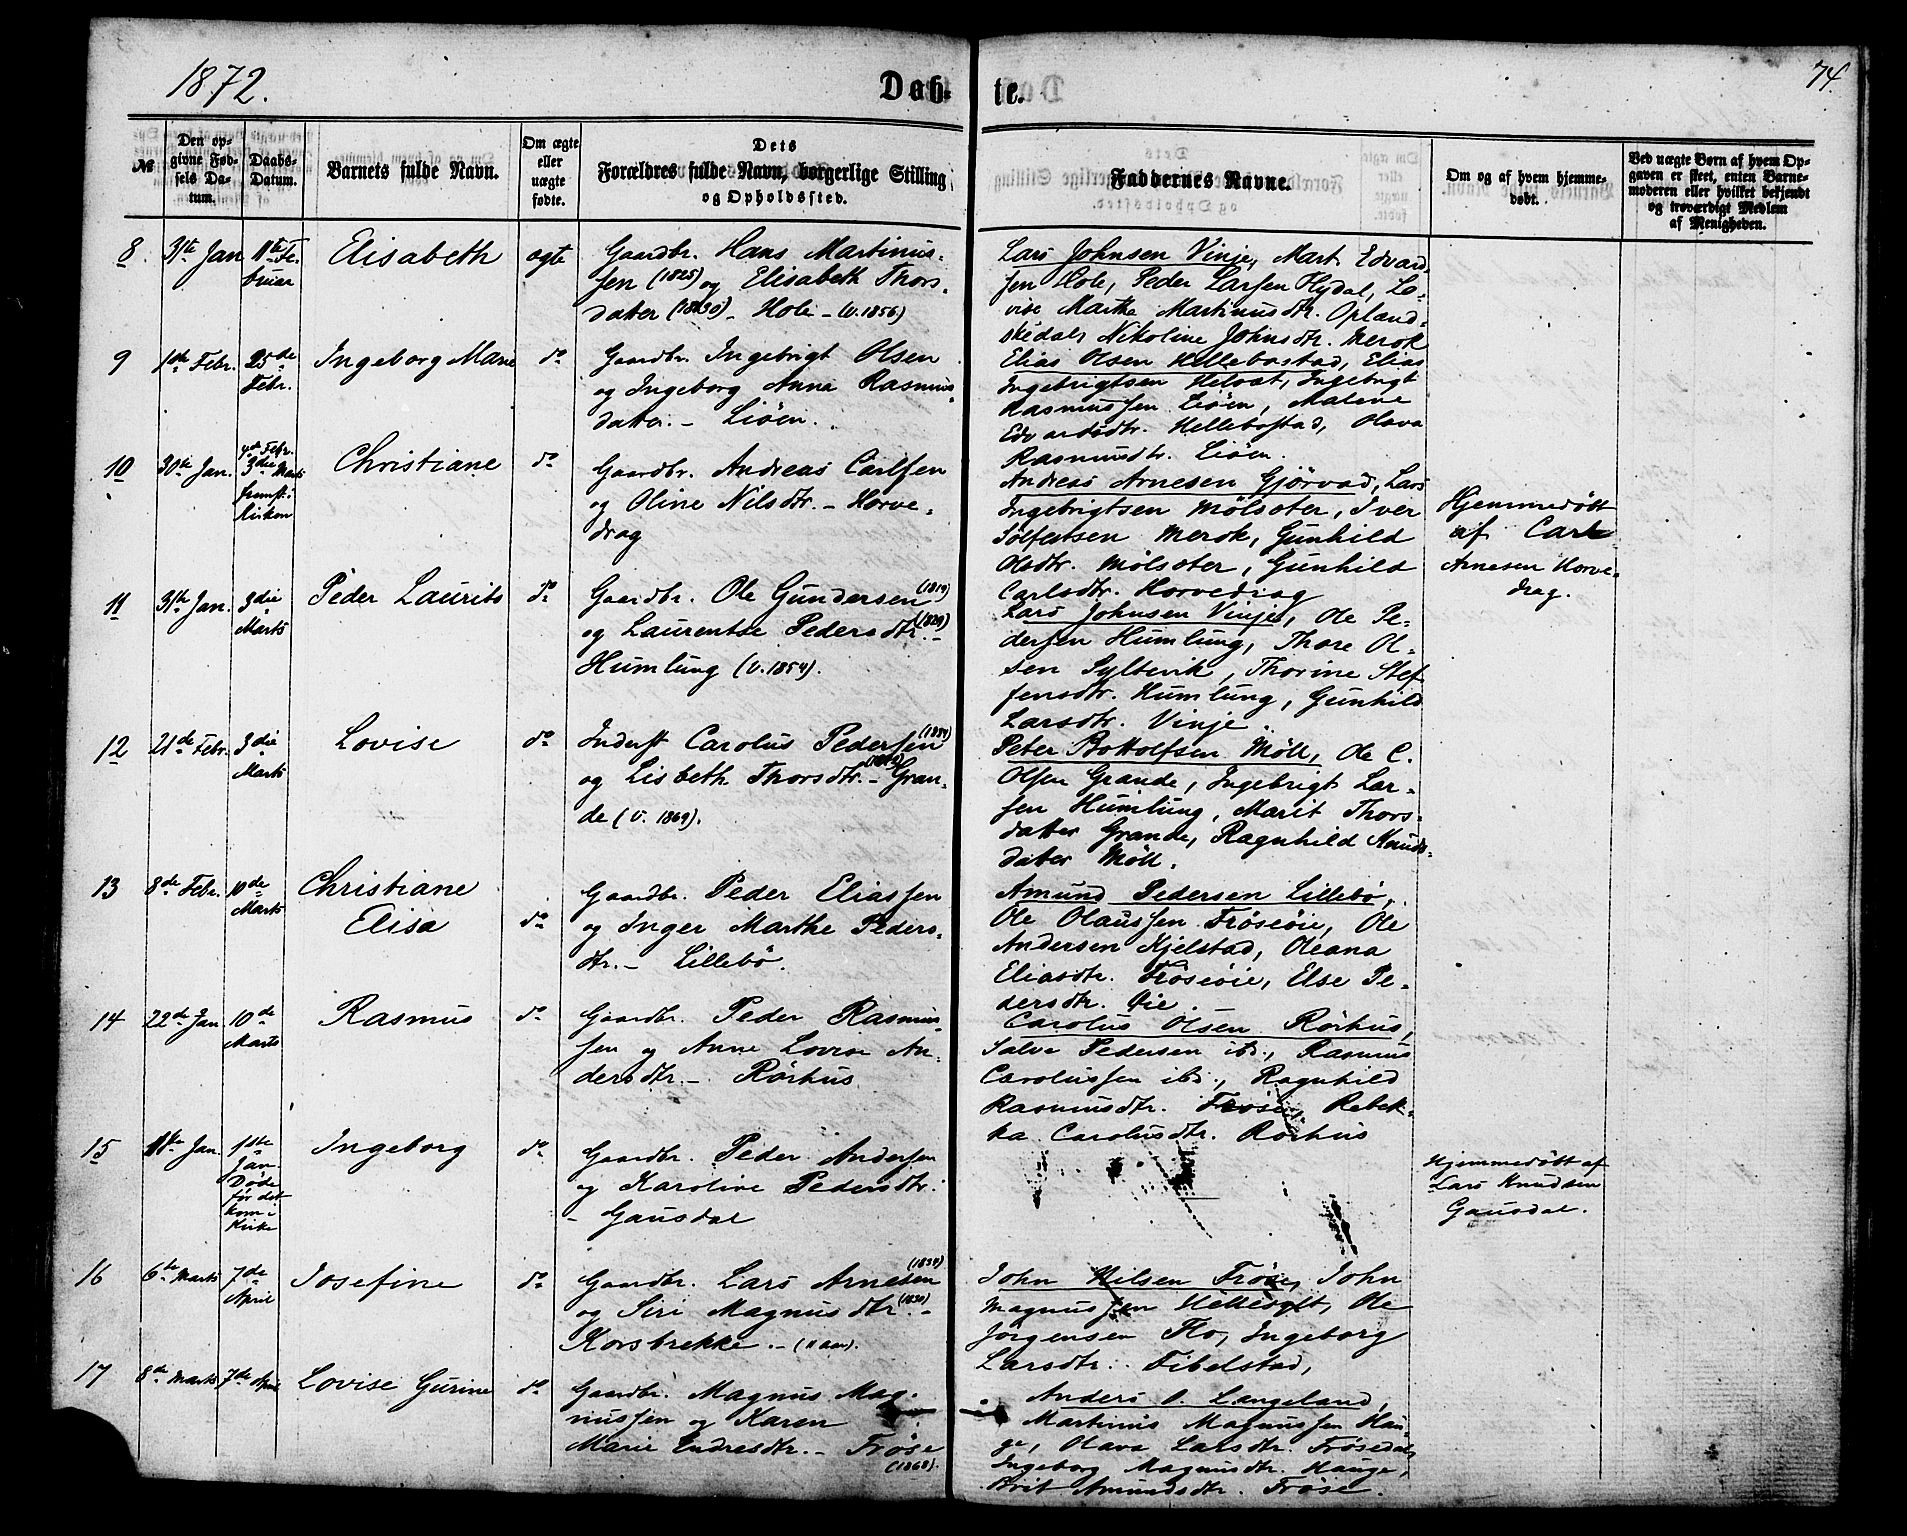 1872.
Døb-
te.
74.
№
Den op-
givne Fød-
sels Da-
tum.
Daabs-
Datum.
Barnets fulde Navn.
Om ægte
eller
uægte
fødte.
Dets
Forældres fulde Navn, borgerlige Stilling
og Opholdssted.
Faddernes Navne.
Om og af hvem hjemme-
døbt.
Ved uægte Børn af hvem Op-
gaven er skeet, enten Barne-
moderen eller hvilket bekjendt
og troværdigt Medlem
af Menigheden.
8.
31te Jan
11te Fe-
bruar
Elisabeth
ægte
Gaardbr. Hans Martinus-
sen (1825) og Elisabeth Thors-
datter (1830) - Hole - (v. 1856)
Lars Johnsen Vinje, Mart. Edvard-
sen Hole, Peder Larsen Hydal, Lo-
vise Marthe Martinusdtr. Opland-
skedals Nikoline Johnsdtr. Merok
9
1de Febr.
25de
Febr.
Ingeborg Marie
do
Gaardbr. Ingebrigt Olsen
og Ingeborg Anna Rasmus-
datter. - Liöen.
Elias Olsen Hellebostad, Elias
Ingebrigtsen Helsæt, Ingebrigt
Rasmussen Liöen, Malene
Edvardsdtr. Hellebostad, Olava
Rasmusdtr. Liöen.
10
30te Jan.
3die Marts
fremst. i
Kirken
Christiane
do
Gaardbr. Andreas Carlsen
og Oline Nilsdtr. - Horve-
drag
Andreas Arnesen Gjörvad, Lars
Ingebrigtsen Mölsæter, Iver
Sölfestsen Merok, Gunhild
Olsdtr. Mölsæter, Gunhild
Carlsdtr. Horvedrag
Hjemmedöbt
af Carl
Arnesen Horve-
drag.
11
31te Jan.
3die
Marts
Peder Laurits
do
Gaardbr. Ole Gundersen (1819)
og Laurentse Pedersdtr. (1829) -
Humlung (v. 1854).
Lars Johnsen Vinje, Ole Pe-
dersen Humlung, Thore Ol-
sen Sylterik, Thorine Stef
fensdtr. Humlung, Gunhild
Larsdtr. Vinje.
12
21de Febr.
3die
Marts
Lovise
do
Inderst Carolus Pedersen
og Lisbeth Thorsdtr. - Gran-
de (v. 1869).
Peter Bottolfsen Möll, Ole C.
Olsen Grande, Ingebrigt Lar-
sen Humlung, Marit Thors-
datter Grande, Ragnhild Knuds-
datter Möll.
13
8de Febr.
10de
Marts
Christiane
Elisa
do
Gaardbr. Peder Eliassen
og Inger Marthe Peders-
dtr. - Lillebö.
Amund Pedersen Lillebö,
Ole Olaussen Fröseöie, Ole
Andersen Kjelstad, Oleana
Eliasdtr. Fröseöie, Else Pe-
dersdtr. Öie.
14
22de Jan
10de
Marts
Rasmus
do
Gaardbr. Peder Rasmus-
sen og Anne Lovise An-
dersdtr. - Rörhus
Carolus Olsen Rörhus,
Salve Pedersen ibd., Rasmus
Carolussen ibd., Ragnhild
Rasmusdtr. Fröse, Rebek-
ka Carolusdtr. Rörhus
15
Jan.
Jan.
Döde
för det
kom i
Kirke
Ingeborg
do
Gaardbr. Peder Andersen
og Karoline Pedersdtr.
- Gausdal
Hjemmedöbt af
Lars Knudsen
Gausdal.
16
6te Marts
7de
April
Josefine
do
Gaardbr. Lars Arnesen
og Siri Magnusdtr. (1830) -
Korsbrekke. - (11 aar).
John Nilsen Fröse, John
Magnussen Hellesylt, Ole
Jörgensen Flo, Ingeborg
Larsdtr. Fibelstad,
17
8de Marts
7de April
Lovise Gurine
do
Gaardbr. Magnus Mag-
nussen og Karen
Marie Endresdtr. - Fröse
(1868).
Anders O. Langeland,
Martinus Magnussen Hau-
ge, Olava Larsdtr. Frösedal,
Ingeborg Magnusdtr. Hauge,
Brit Amundsdtr. Fröse.